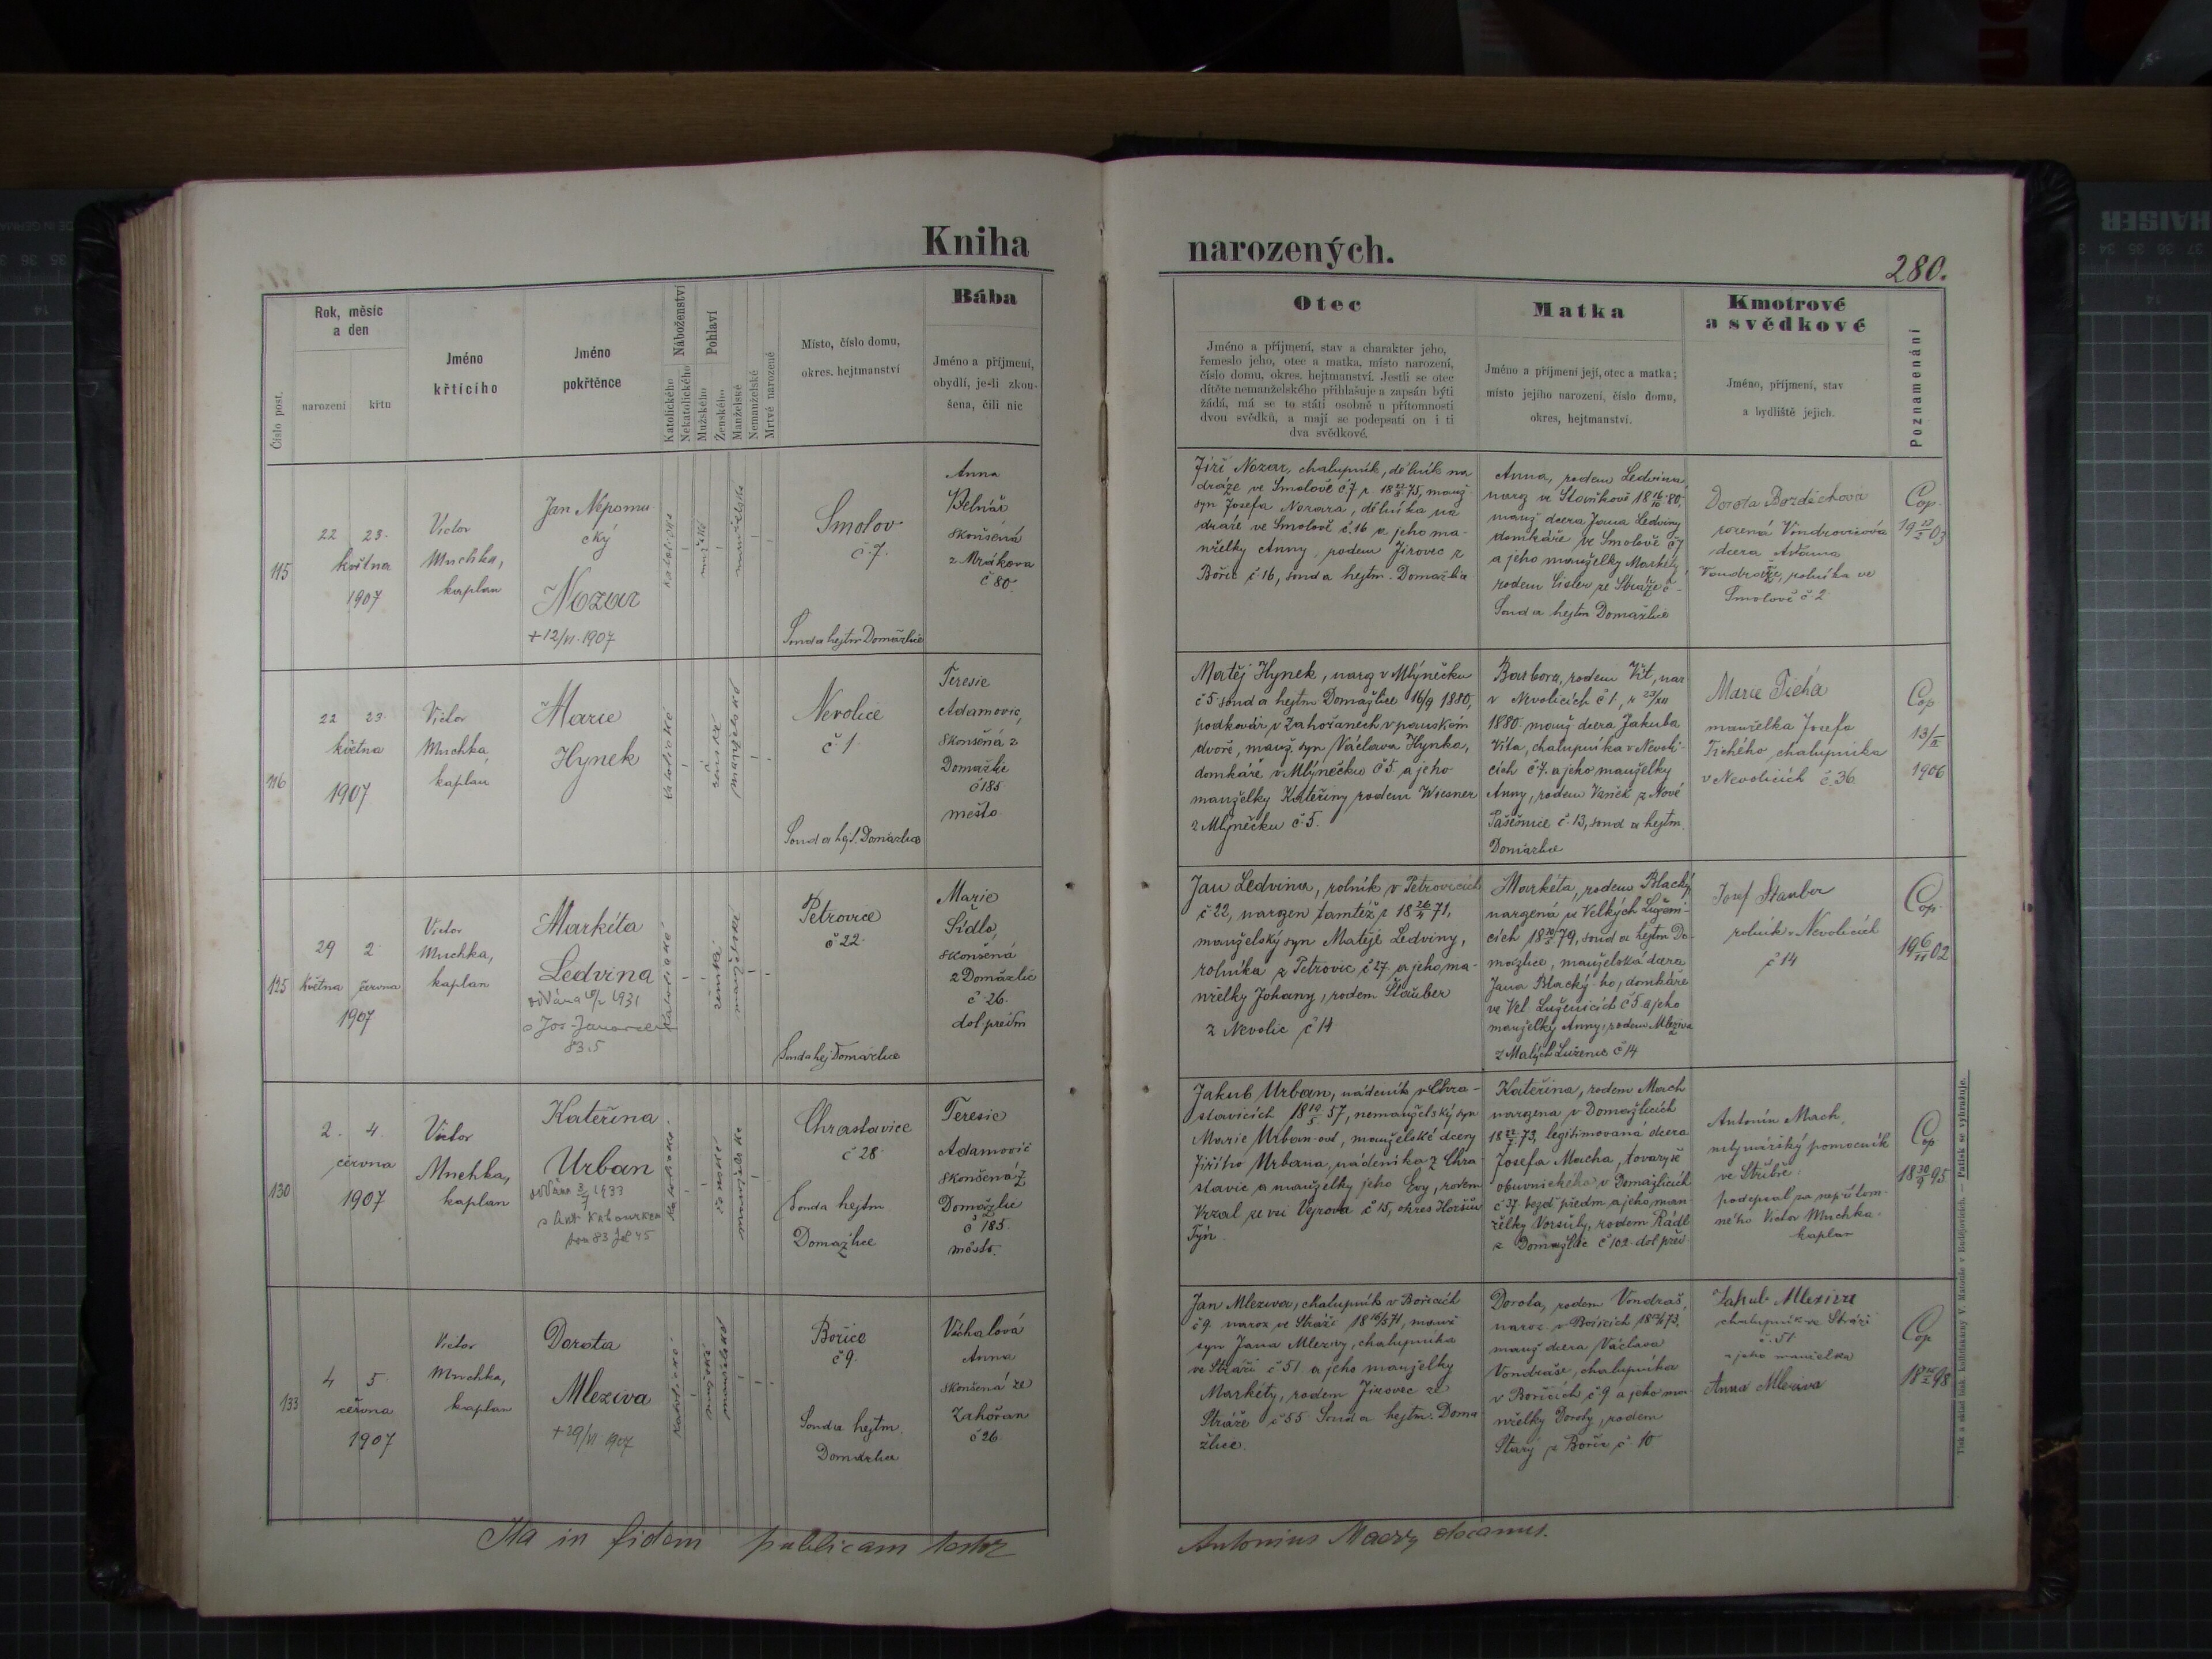 Kniha
narozených.
280.
Rok, měsíc
a den
Číslo post.
narození
křtu
Jméno
křtícího
Jméno
pokřtěnce
Náboženství
Katolického
Nekatolického
Pohlaví
Mužského
Ženského
Manželské
Nemanželské
Mrtvě narozené
Místo, číslo domu,
okres. hejtmanství
Bába
Jméno a příjmení,
obydlí, je-li zkou-
šena, čili nic
Otec
Jméno a příjmení, stav a charakter jeho,
řemeslo jeho, otec a matka, místo narození,
číslo domu, okres. hejtmanství. Jestli se otec
dítěte nemanželského přihlašuje a zapsán býti
žádá, má se to státi osobně u přítomnosti
dvou svědků, a mají se podepsati on i ti
dva svědkové.
Matka
Jméno a příjmení její, otec a matka;
místo jejího narození, číslo domu,
okres, hejtmanství.
Kmotrové
a svědkové
Jméno, příjmení, stav
a bydliště jejich.
Poznamenání
115
22 23.
května
1907
Victor
Muchka,
kaplan
Jan Nepomu
cký
Nozar
+12/VI. 1907
katolické
mužské
manželské
Smolov
č 7.
Soud a hejtm Domažlice
Anna
skoušená
z Mrákova
č 80.
Jiří Nozar, chalupník, dělník na
dráze ve Smolově č 7 75, manž
syn Josefa Nozara, dělníka na
dráze ve Smolově č. 16 a jeho ma-
nželky Anny, rodem Jirovec z
Bořic č 16, soud a hejtm. Domažlice
Anna, rodem Ledvina,
80,
manž dcera Jana Ledviny
domkáře ve Smolově č 7
a jeho manželky Markéty,
rodem ze Stráže č -
Soud a hejtm Domažlice
Dorota Bozděchová
rozená
dcera Adama
rolníka ve
Smolově č 2
Cop.
03
116
22 23.
května
1907
Victor
Muchka,
kaplan
Marie
Hynek
katolické
ženské
manželské
Nevolice
č 1.
Soud a hejt. Domažlice
Teresie
Adamovic,
skoušená z
Domažlic
č 185
město.
Matěj Hynek, naroz v Mlýnečku
č 5 soud a hejtm Domažlice 16/9 1880,
podkovář v Zahořanech v panském
dvoře, manž. syn Václava Hynka,
domkáře v Mlýnečku č 5. a jeho
manželky Kateřiny rodem Wiesner
z Mlýnečku č. 5.
Barbora, rodem Vít, nar
v Nevolicích č 1, 23/XII
1880. manž dcera Jakuba
Víta, chalupníka v Nevoli-
cích č 7. a jeho manželky
Anny, rodem Vaněk z Nové
Pasečnice č. 13, soud a hejtm.
Domažlice
Marie Tichá
manželka Josefa
Tichého chalupníka
v Nevolicích č. 36.
Cop
13/II
1906
125
29 2
května června
1907
Victor
Muchka,
kaplan
Markéta
Ledvina
oddána 1931
s Jos.
83.5
katolické
ženské
manželské
Petrovice
č 22.
Soud a hej Domažlice
Marie
Sidlo,
skoušená
z Domažlic
č 26.
dol. předm
Jan Ledvina, rolník v Petrovicích
č 22, narozen tamtéž 71,
manželský syn Matěje Ledviny,
rolníka z Petrovic č 27 a jeho ma-
nželky Johany, rodem Štauber
z Nevolic č 14
Markéta, rodem Blacký,
narozená ve Velkých Luženi-
cích 79, soud a hejtm Do-
mažlice, manželská dcera
Jana Blacký-ho, domkáře
ve Vel Luženicích č 5 a jeho
manželky Anny, rodem Mleziva
z Malých Luženic č 14
Josef Stauber
rolník v Nevolicích
č 14
Cop.
02
130
2. 4.
června
1907
Victor
Muchka,
kaplan
Kateřina
Urban
oddána 1933
s Ant
katolické
ženské
manželské
Chrastavice
č 28
Souda hejtm
Domažlice
Teresie
Adamovič
skoušená z
Domažlic
č 185.
město.
Jakub Urban, nádeník v Chra-
stavicích 57, nemanželský syn
Marie Urban-ové, manželské dcery
Jiřího Urbana, nádeníka z Chra-
stavic a manželky jeho Evy, rodem
Vrzal ze vsi č 15, okres Horšův
Týn
Kateřina, rodem Mach
narozena v Domažlicích
73, legitimovaná dcera
Josefa Macha, tovaryše
obuvnického v Domažlicích
č 37. předm a jeho man-
želky Voršily, rodem Rádl
z Domažlic č 102. dol před
Antonín Mach,
mlynářský pomocník
ve Stříbře.
podepsal za nepřítom-
ného Victor Muchka.
kaplan
Cop
95
133
4 5.
června
1907
Victor
Muchka,
kaplan
Dorota
Mleziva
+29/VI. 1907
katolické
manželské
Bořice
č 9.
Souda hejtm.
Domažlice
Váchalová
Anna
skoušená ze
Zahořan
č 26.
Jan Mleziva, chalupník v Bořicích
č 9. naroz ve Stráži 71, manž
syn Jana Mlezivy, chalupníka
ve Stráži č 51 a jeho manželky
Markéty, rodem Jirovec ze
Stráže č 55 Soud a hejtm. Doma
žlice.
Dorota, rodem Vondraš,
naroz. v Bořicích 73,
manž dcera Václava
Vondraše, chalupníka
v Bořicích č 9 a jeho ma
nželky Doroty, rodem
Starý z Bořic č 10
Jakub Mleziva
chalupník ve Stráži
č. 51
a jeho manželka
Anna Mleziva
Cop
98
Ita in fidem publicam testor
Antonius decanus.
Tisk a sklad knihtiskárny V. Matouše v Budějovicích. — Patisk se vyhražuje.